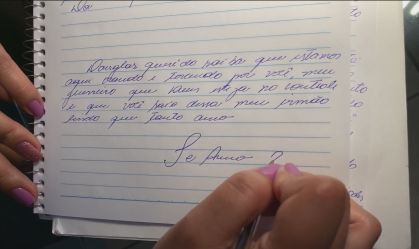 Da:
Douglas querido saiba que estamos
aqui orando e torcendo por você, meu
guerreiro que Deus esteja no controle
e que você saia dessa meu irmão
lindo que tanto amo
Te Amo